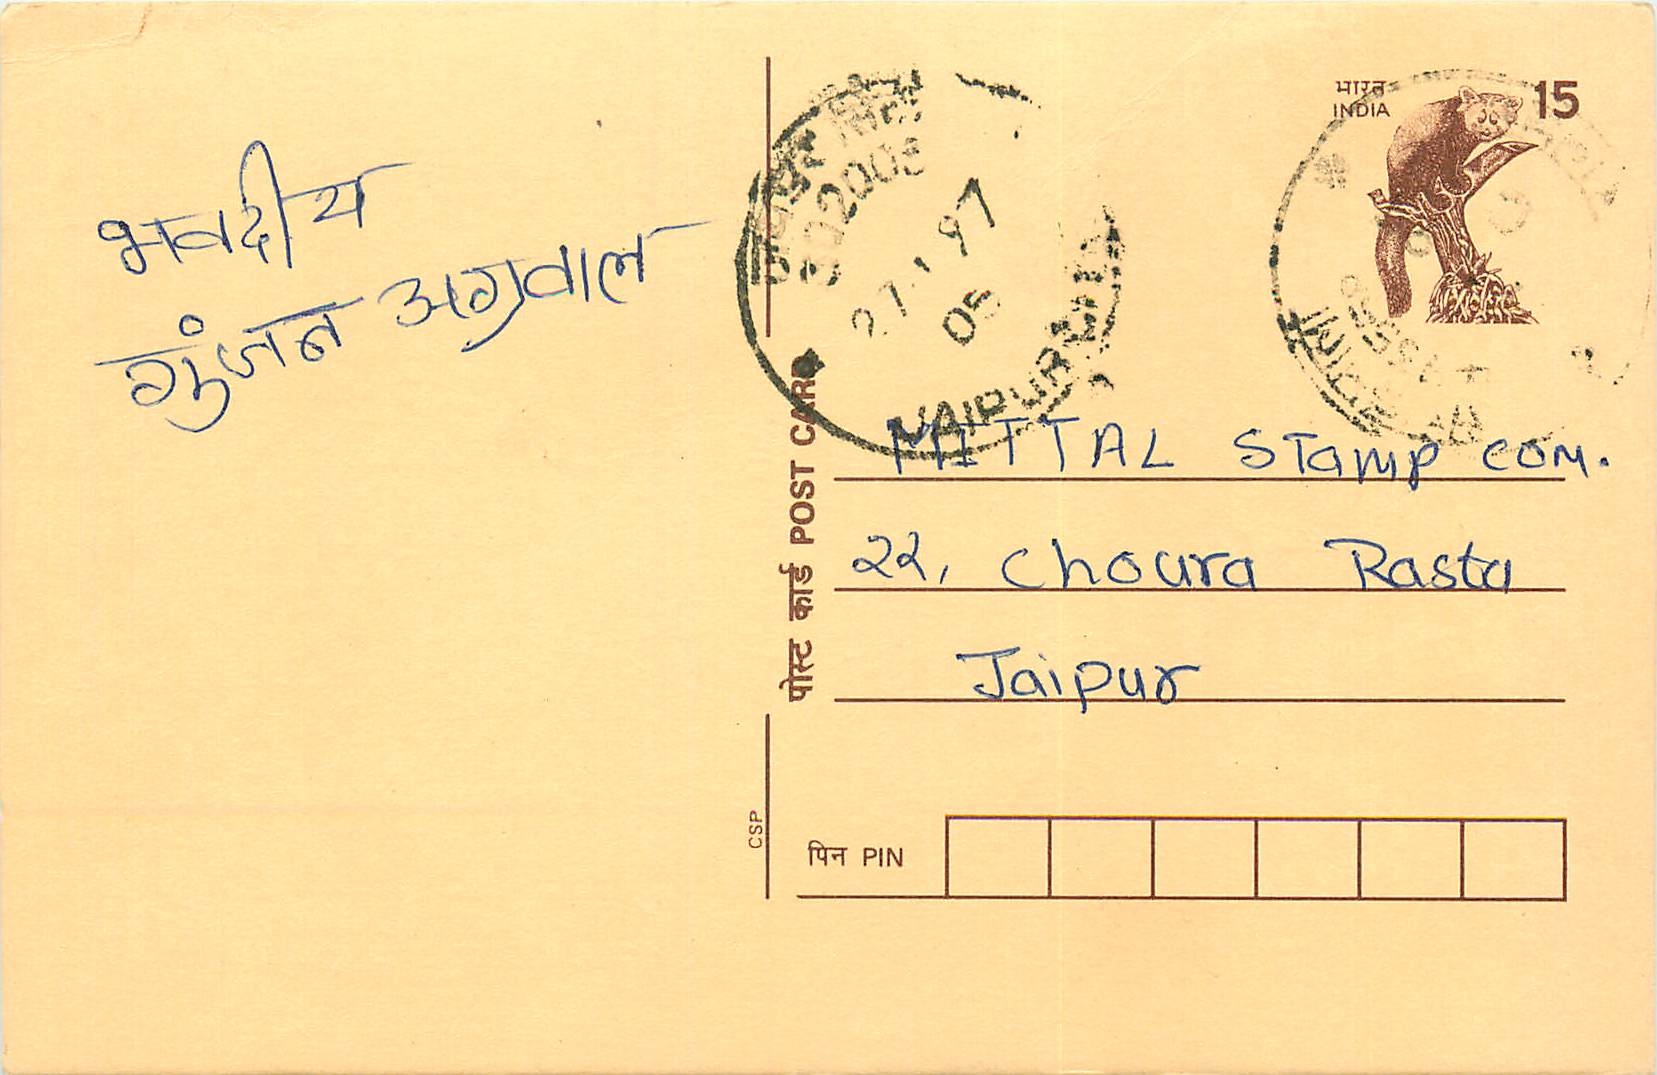 भवदीय
गुंजन अग्रवाल
भारत
INDIA
15
302003
27.1.97
05
JAIPUR
पोस्ट कार्ड POST CARD
MITTAL Stamp com.
22, Choura Rasta
Jaipur
CSP
पिन PIN